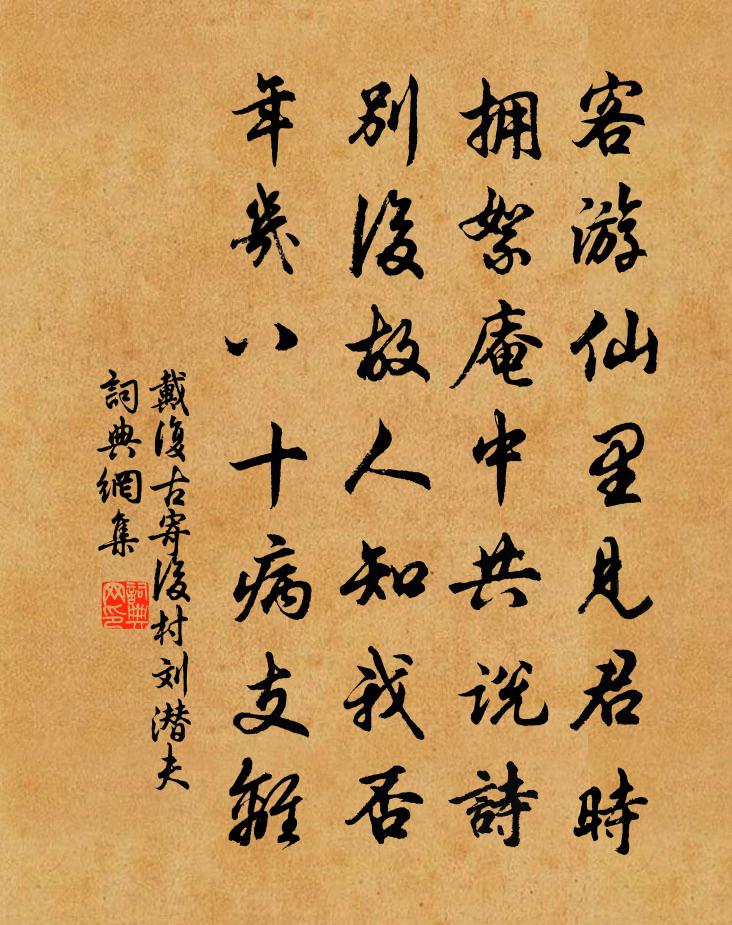 客游仙里見君時
拥絮庵中共説詩
别後故人知我否
年幾八十病支離
戴復古寄後村刘潜夫
詞典網集
詞典
网印